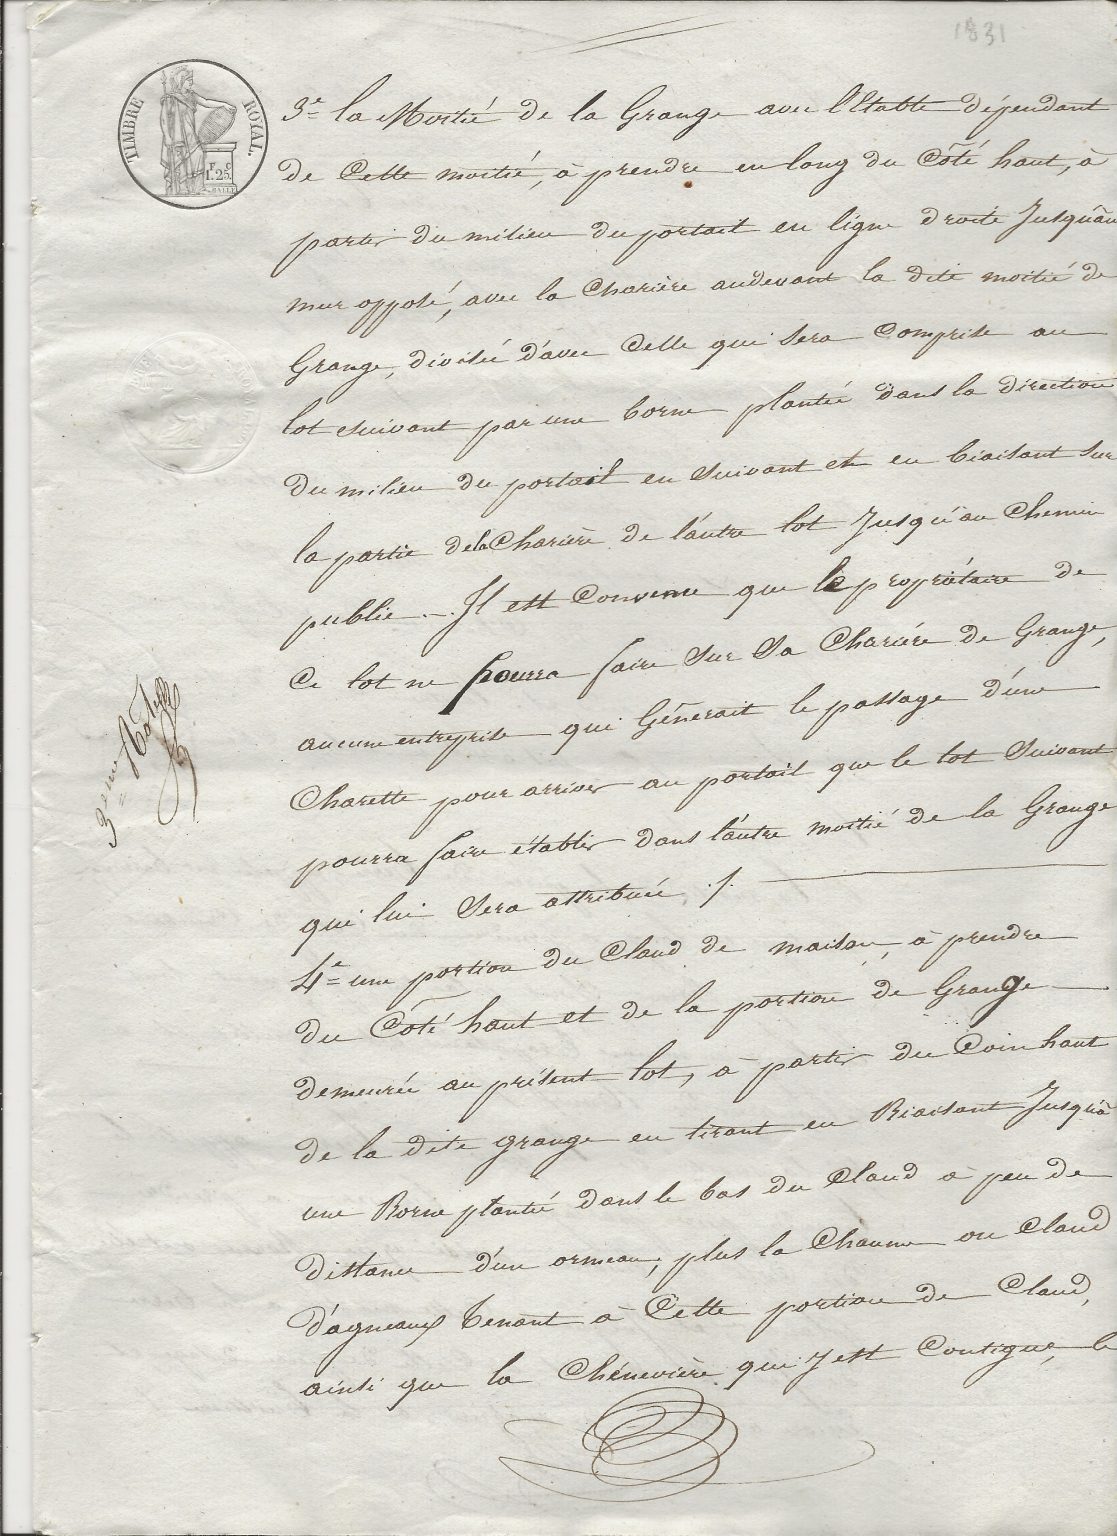 1831
TIMBRE ROYAL.
F. C
1. 25.
3e la Moitié de la Grange avec l'Etable dépendant
de Cette moitié, à prendre en long du Côté haut, à
partir du milieu du portail en ligne droite Jusqu'au
mur opposé, avec la Charière audevant la dite moitié de
Grange, divisée d'avec Celle qui sera Comprise au
lot suivant par une borne plantée dans la direction
du milieu du portail en suivant et en biaisant sur
la partie dela Charière de l'autre lot Jusqu'au Chemin
public. — Il est Convenu que le propriétaire de
Ce lot ne pourra faire sur sa Charière de Grange,
aucune entreprise qui Gênerait le passage d'une
Charette pour arriver au portail que le lot suivant
pourra faire établir dans l'autre moitié de la Grange
qui lui sera attribuée ./.
4e une portion du Claud de maison, à prendre
du Côté haut et de la portion de Grange
demeurée au présent lot, à partir du Coin haut
de la dite grange en tirant en Biaisant Jusqu'à
une Borne plantée dans le bas du Claud à peu de
distance d'un ormeau, plus la Chaume ou Claud
d'agneaux tenant à Cette portion de Claud,
ainsi que la Chénevière qui y est Contigue, le
3eme Rôle